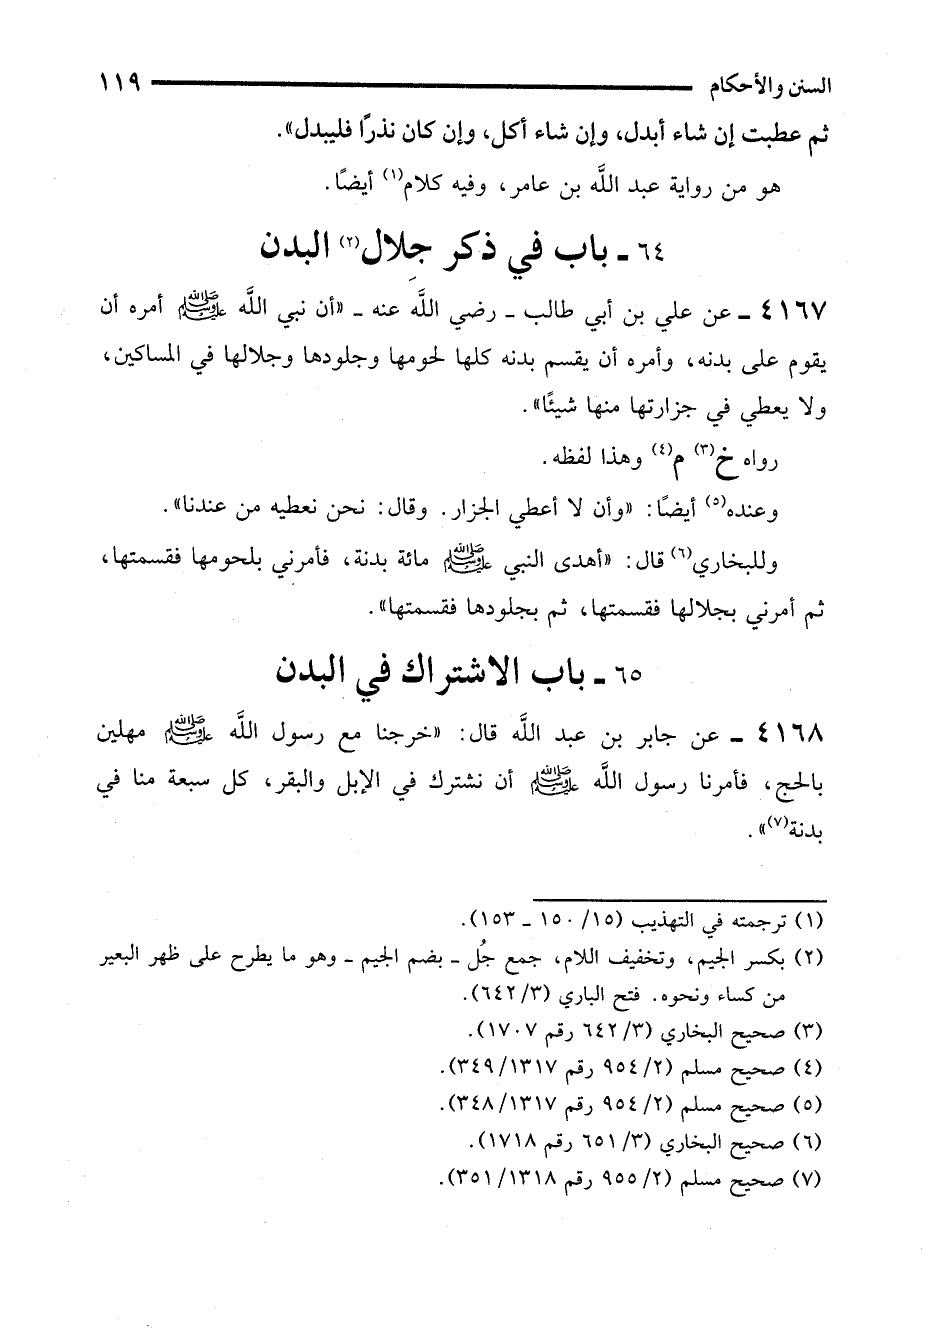 السنن والأحكام ١١٩
ثم عطبت إن شاء أبدل، وإن شاء أكل، وإن كان نذرًا فليبدل».
هو من رواية عبد اللَّه بن عامر، وفيه كلام(١) أيضًا.
٦٤ ـ باب في ذكر جِلال(٢) البدن
٤١٦٧ ـ عن علي بن أبي طالب ـ رضي اللَّه عنه ـ «أن نبي اللَّه ﷺ أمره أن
يقوم على بدنه، وأمره أن يقسم بدنه كلها لحومها وجلودها وجلالها في المساكين،
ولا يعطي في جزارتها منها شيئًا».
رواه خ(٣) م(٤) وهذا لفظه.
وعنده(٥) أيضًا: «وأن لا أعطي الجزار. وقال: نحن نعطيه من عندنا».
وللبخاري(٦) قال: «أهدى النبي ﷺ مائة بدنة، فأمرني بلحومها فقسمتها،
ثم أمرني بجلالها فقسمتها، ثم بجلودها فقسمتها».
٦٥ ـ باب الاشتراك في البدن
٤١٦٨ ـ عن جابر بن عبد اللَّه قال: «خرجنا مع رسول اللَّه ﷺ مهلين
بالحج، فأمرنا رسول اللَّه ﷺ أن نشترك في الإبل والبقر، كل سبعة منا في
بدنة(٧)».
(١) ترجمته في التهذيب (١٥/ ١٥٠ ـ ١٥٣).
(٢) بكسر الجيم، وتخفيف اللام، جمع جُل ـ بضم الجيم ـ وهو ما يطرح على ظهر البعير
من كساء ونحوه. فتح الباري (٣/ ٦٤٢).
(٣) صحيح البخاري (٣/ ٦٤٢ رقم ١٧٠٧).
(٤) صحيح مسلم (٢/ ٩٥٤ رقم ١٣١٧/ ٣٤٩).
(٥) صحيح مسلم (٢/ ٩٥٤ رقم ١٣١٧/ ٣٤٨).
(٦) صحيح البخاري (٣/ ٦٥١ رقم ١٧١٨).
(٧) صحيح مسلم (٢/ ٩٥٥ رقم ١٣١٨/ ٣٥١).